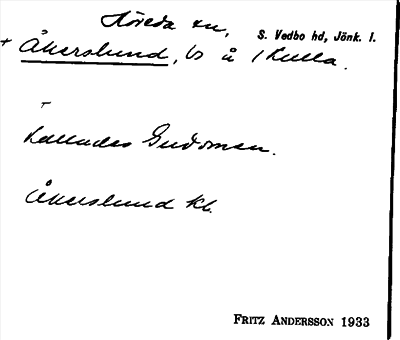 Höreda sn, S. Vedbo hd, Jönk. l.
+ Åkerslund, ls å 1 Kulla.
Kallades Gudsman.
Åkerslund kl.
FRITZ ANDERSSON 1933